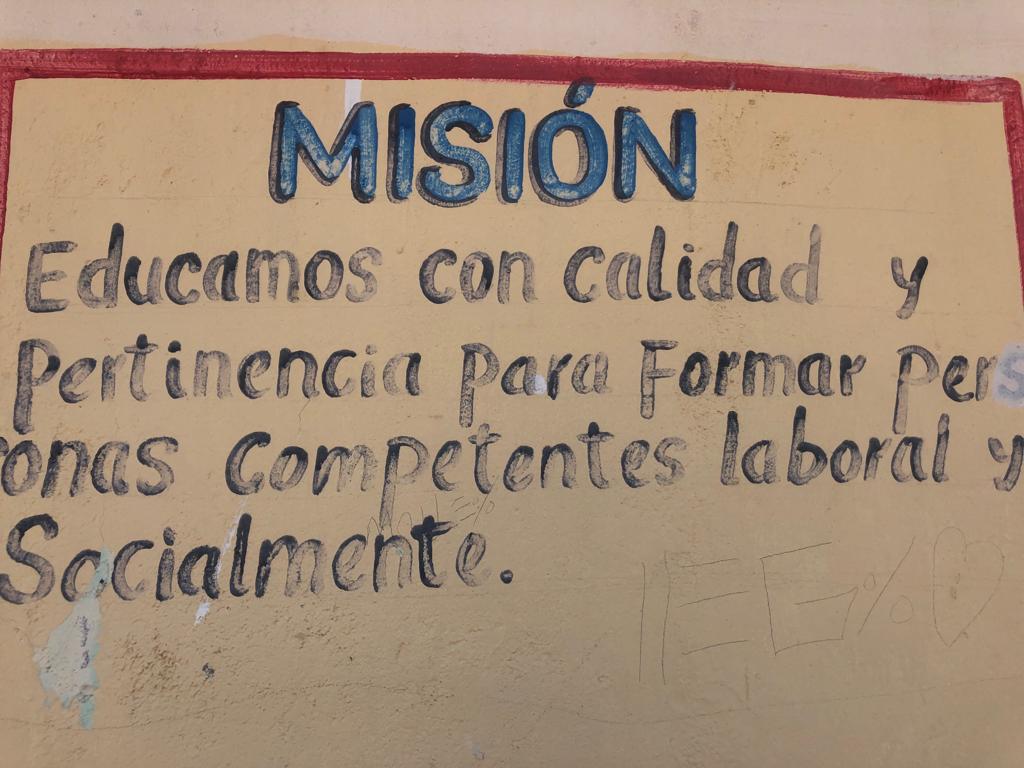 MISIÓN
Educamos con calidad y
Pertinencia para Formar pers
onas Competentes laboral y
Socialmente.